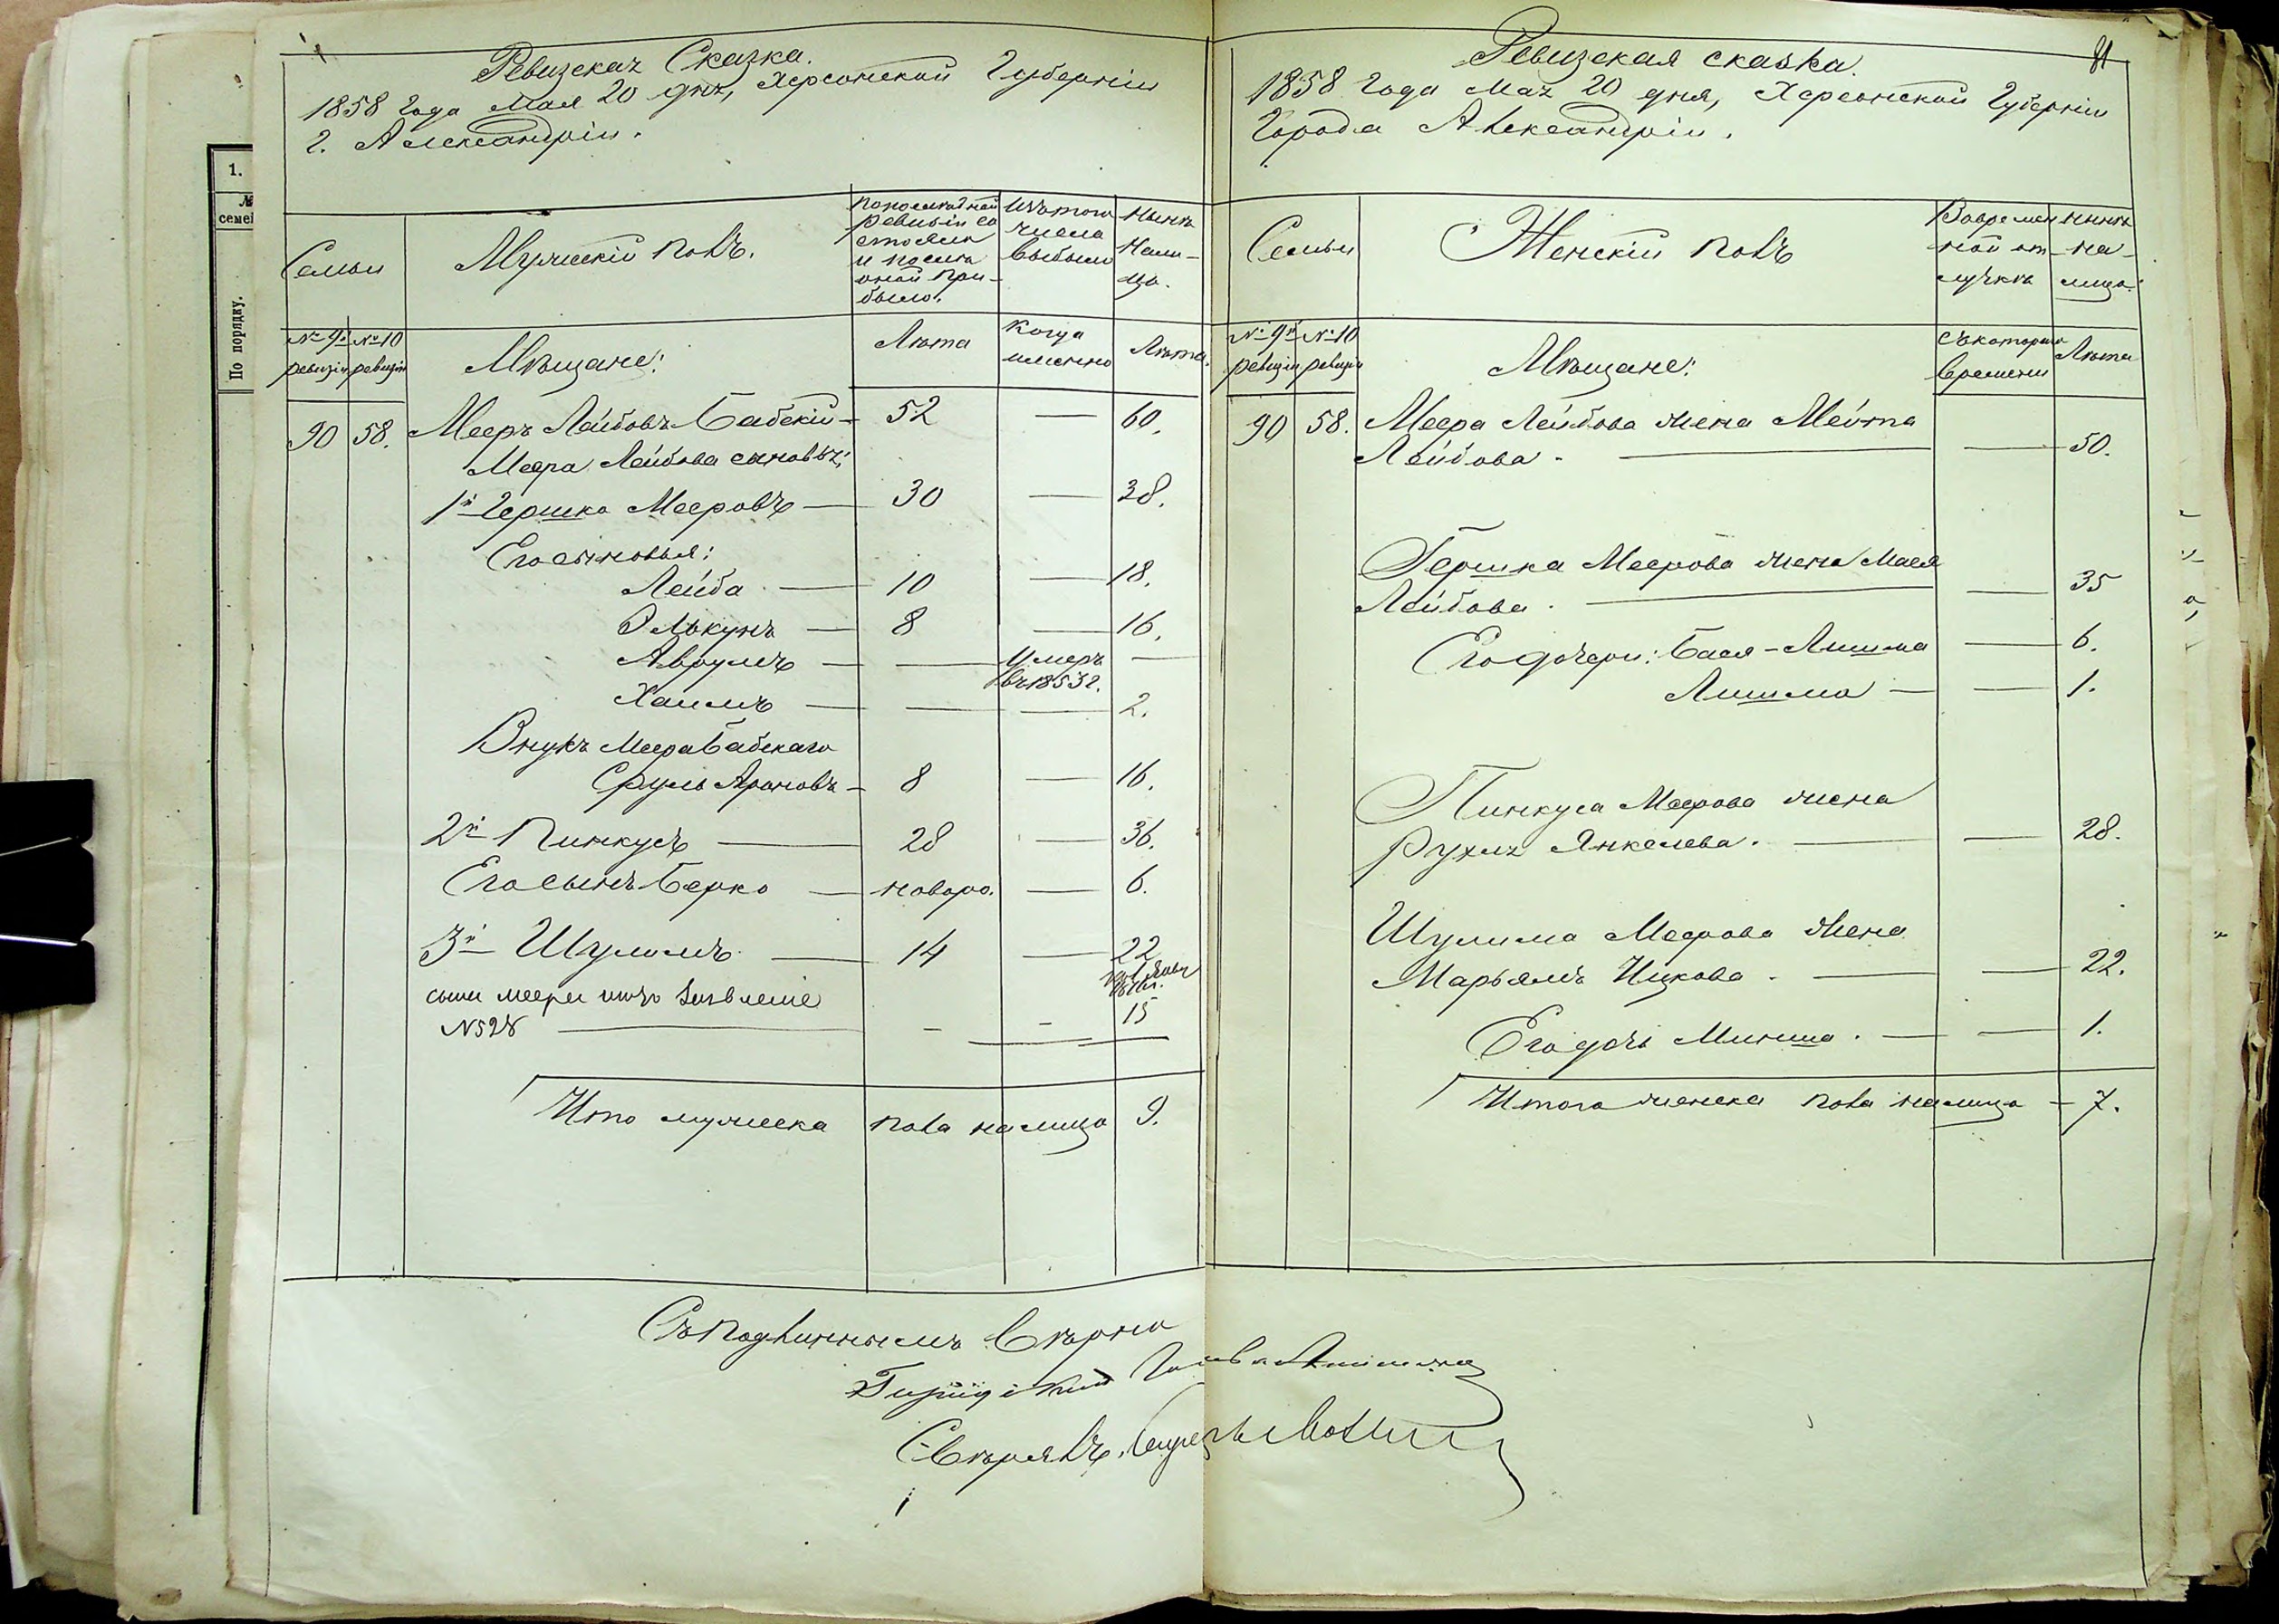 1.
№
семе
По порядку.
Ревизская Сказка.
1858 года Мая 20 дня, Херсонской Губерніи
г. Александріи.
Семьи
Мужескій полъ.
По последней ревизіи состояло и после оной прибыло.
Изъ того числа выбыло
Нынѣ на лицо.
№ 9й ревизіи
№ 10 ревизіи
Мѣщане:
Лѣта
Когда именно
Лѣта.
90 58. Мееръ Лейбовъ Бабскій — 52 — 60.
Меера Лейбова сыновья:
1й Гершко Мееровъ — 30 — 38.
Его сыновья:
Лейба — 10 — 18.
Элькунъ — 8 — 16.
Аврумъ — — Умеръ въ 1853 г. —
Хаимъ — — — 2.
Внукъ Меера Бабскаго
Сруль Ароновъ — 8 — 16.
2й Пинкусъ — 28 — 36.
Его сынъ Берко — новоро. — 6.
3й Шулимъ — 14 — 22
15
№528 — - -
Ито мужеска пола на лицо 9.
Ревизская сказка.
1858 Года Мая 20 дня, Херсонской Губерніи
Города Александріи.
Семьи
Женскій полъ
Во временной отлучкѣ
Нынѣ на лицо.
№ 9й ревизіи
№ 10 ревизіи
Мѣщане:
Съ котораго времени
Лѣта
90 58. Меера Лейбова жена Мейта
Лейбова. — — 50.
Гершка Меерова жена Мася
Лейбова. — — 35
Его дочери: Бася-Лишма — 6.
Лишма — — 1.
Пинкуса Меерова жена
Рухля Янкелева. — — 28.
Шулима Меерова жена
Марьямъ Ицкова. — — 22.
Его дочь Минша. — — 1.
Итого женска пола на лицо — 7.
Съ подлиннымъ вѣрно
Свѣрялъ